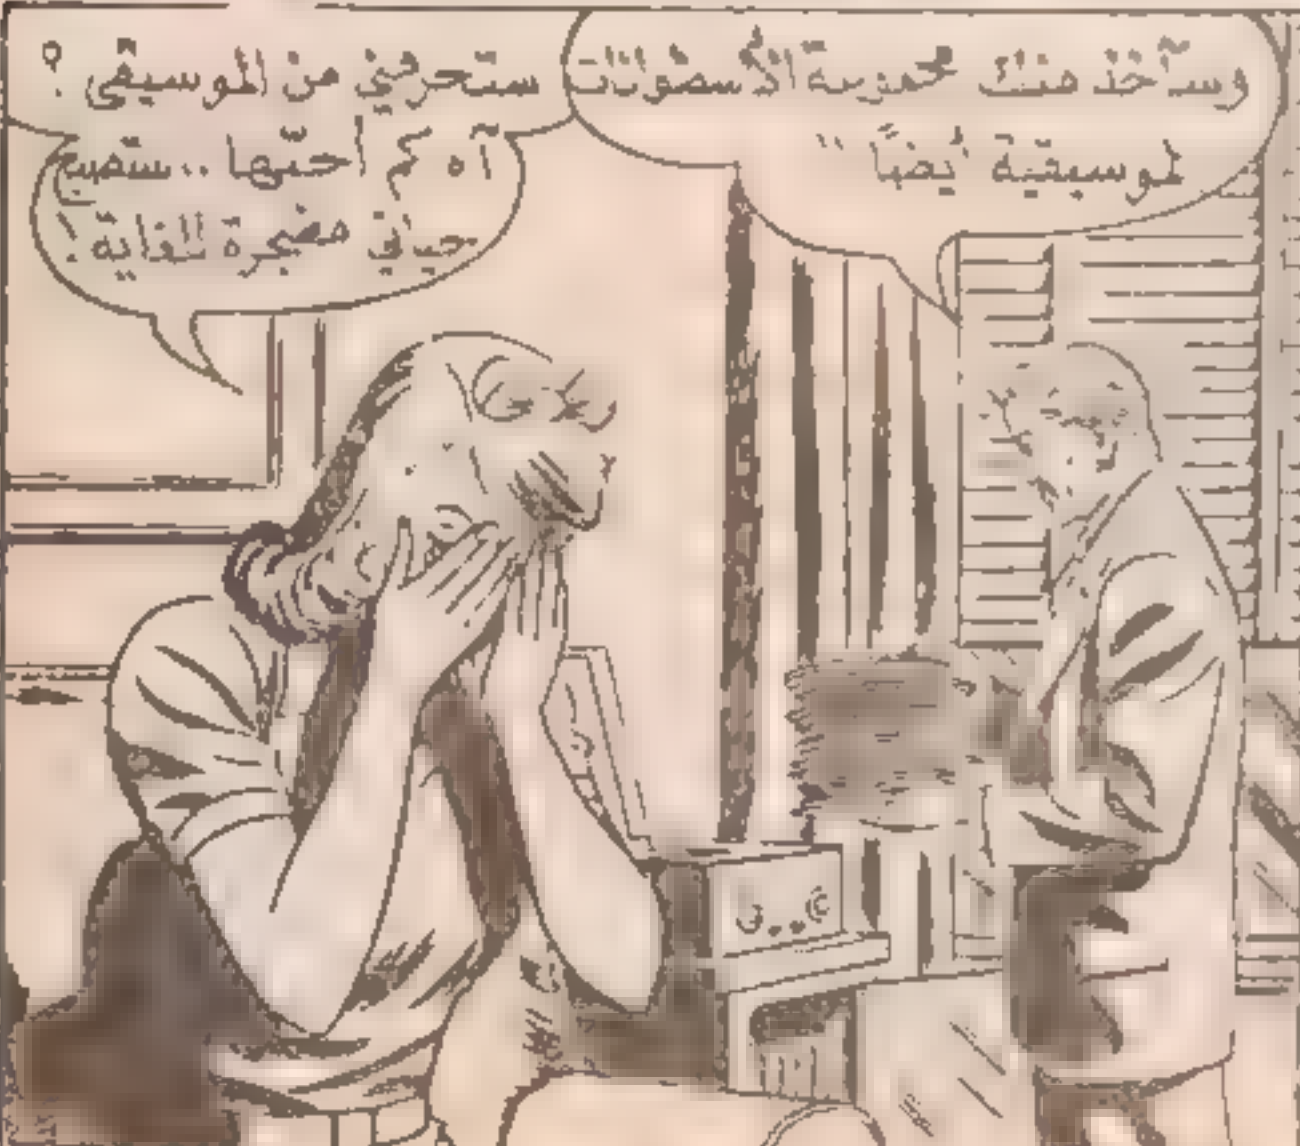 وسآخذ منك مجموعة الأسطوانات
الموسيقية أيضاً ..
ستحرمني من الموسيقى ؟
آه كم أحبّها .. ستصبح
حياتي مضجرة للغاية !